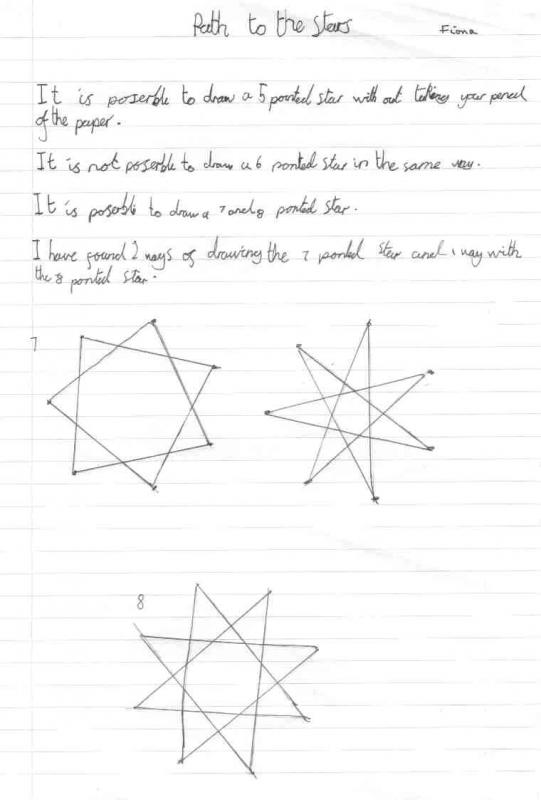 Path to the stars
Fiona
It is poserble to draw a 5 ponted star with out taking your pencil
of the paper.
It is not poserble to draw a 6 ponted star in the same way.
It is poserble to draw a 7 and 8 ponted star.
I have found 2 ways of drawing the 7 ponted star and 1 way with
the 8 ponted star.
7
8